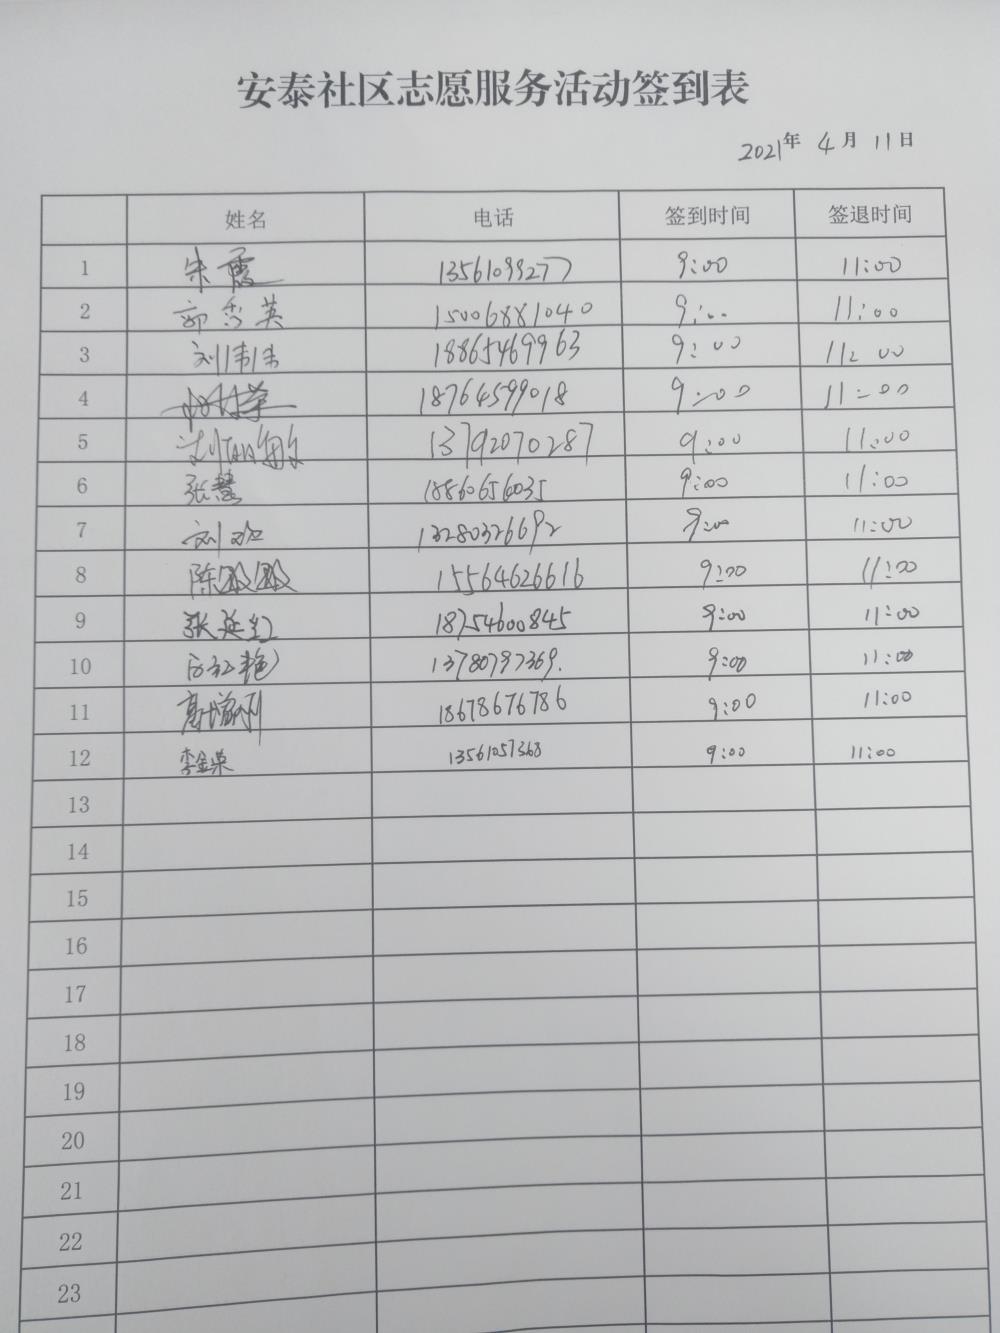 安泰社区志愿服务活动签到表
2021年 4月 11日
姓名 电话 签到时间 签退时间
1 朱霞 13561099277 9:00 11:00
2 郭秀英 15006881040 9:00 11:00
3 刘伟伟 18865469963 9:00 11:00
4 18764599018 9:00 11:00
5 13792070287 9:00 11:00
6 张慧 18860656035 9:00 11:00
7 刘欢 13280326692 9:00 11:00
8 陈 15564626616 9:00 11:00
9 张延红 18754600845 9:00 11:00
10 13780797369. 9:00 11:00
11 18678676786 9:00 11:00
12 李金荣 13561057368 9:00 11:00
13
14
15
16
17
18
19
20
21
22
23